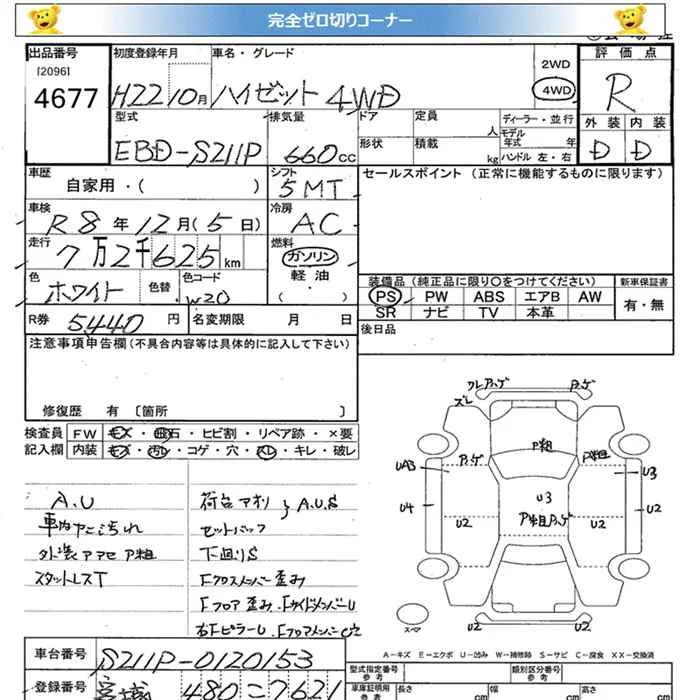 完全ゼロ切りコーナー
出品番号
[2096]
4677
初度登録年月
H22 10月
車名・グレード
ハイゼット 4WD
2WD
4WD
評価点
R
外装 内装
D D
型式
EBD-S211P
排気量
660cc
ドア
形状
定員
人
積載
kg
ディーラー・並行
モデル年式 年
ハンドル 左・右
車歴
自家用・( )
シフト
5MT
セールスポイント (正常に機能するものに限ります)
車検
R8年12月(5日)
冷房
AC
走行
7万2千625km
燃料
ガソリン
軽油
・( )
色
ホワイト
色替
色コード
W20
装備品 (純正品に限り○をつけてください)
新車保証書
PS PW ABS エアB AW
有・無
SR ナビ TV 本革
R券
5440円
名変期限 月 日
後日品
注意事項申告欄(不具合内容等は具体的に記入して下さい)
修復歴 有 [箇所 ]
検査員 FW キズ・飛石・ヒビ割・リペア跡・×要
記入欄 内装 キズ・汚レ・コゲ・穴・スレ・キレ・破レ
A.U
車内ヤニ汚れ
外装アマセ P粗
スタットレスT
荷台アオリ } A.U.S
セットバック
下廻りS
Fクロスメンバー歪み
Fフロア歪み・FサイドメンバーU
右FピラーU・Fフロアメンバー穴
ワレアゲ
ズレ
P粗
アゲ
P粗
UA3
U3
U4
U3
U2
U2
U2
U2
U2
スペア
A-キズ E-エクボ U-凹み W-補修跡 S-サビ C-腐食 XX-交換済
車台番号
S211P-0120153
登録番号
宮城 480 こ 7621
型式指定番号
参考
類別区分番号
参考
車庫証明用
参考
長さ
cm
幅
cm
高さ
cm